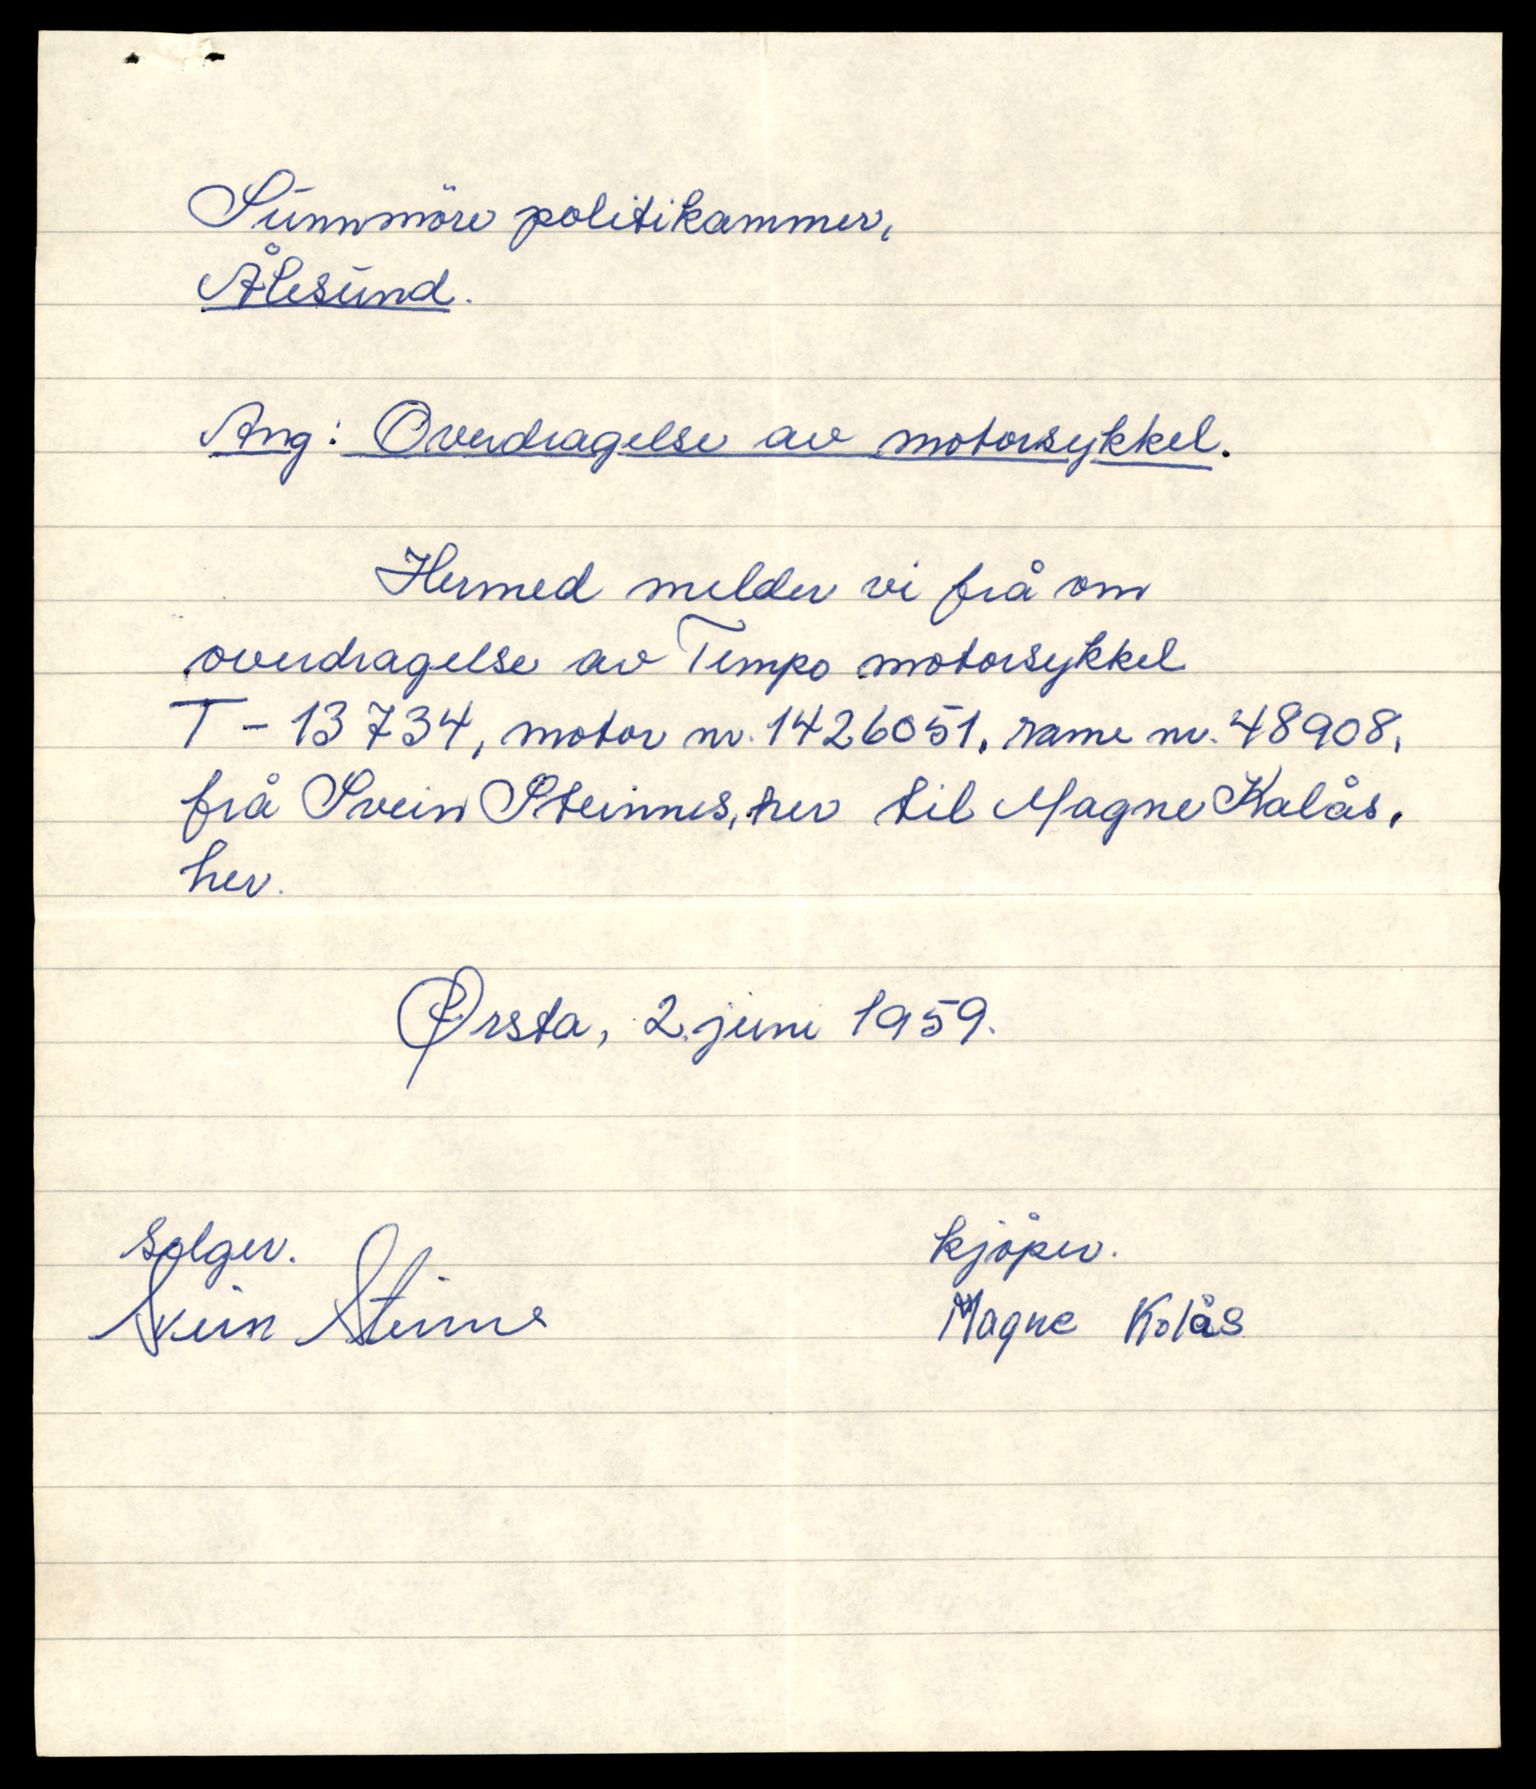 Sunnmöre politikammer,
Ålesund.
Ang: Overdragelse av motorsykkel.
Hermed melder vi frå om
overdragelse av Tempo motorsykkel
T - 13734, motor nr. 1426051, rame nr. 48908,
frå Svein Steinnes, her til Magne Kolås,
her.
Ørsta, 2. juni 1959.
Selger. kjöper.
Svein Steinnes Magne Kolås